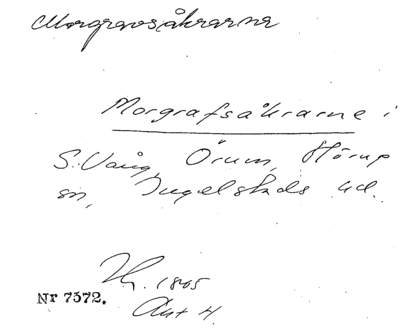 Morgravsåkrarne
Morgrafsåkrarne i
S. Vång, Örum, Hörup
sn, Ingelstads hd.
1805
Nr 7572.
Akt 4